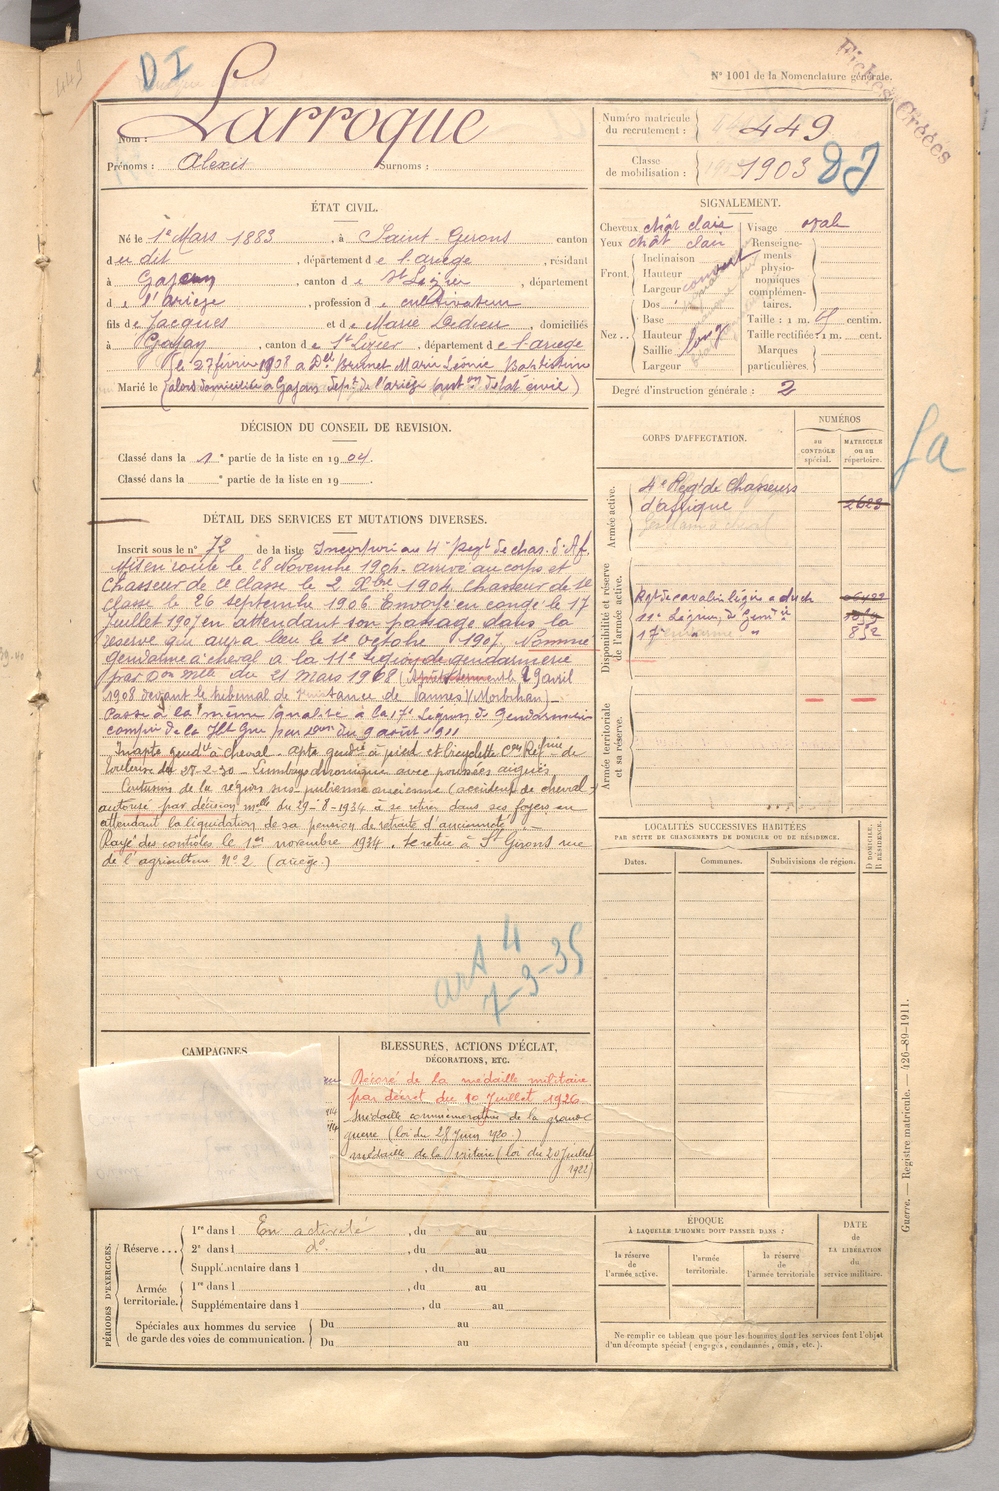 449
DI
Nº 1001 de la Nomenclature générale.
Fiches Créées
Nom : Larroque
Prénoms : Alexis Surnoms :
Numéro matricule du recrutement : 449
Classe de mobilisation : 1903
ÉTAT CIVIL.
Né le 1e Mars 1883, à Saint-Girons canton
du dit, département de l'ariège, résidant
à Gajan, canton de St Lizier, département
de l'ariège, profession de cultivateur
fils de Jacques et de Marie Dedieu, domiciliés
à Gajan, canton de St Lizier, département de l'ariège
le 27 février 1908 à Dlle Brunet Marie Léonie Baptistine
Marié le (alors domiciliée à Gajan dépt de l'ariège
SIGNALEMENT.
Cheveux chât clair Visage ovale
Yeux chât clair Renseignements physionomiques complémentaires.
Front. Inclinaison
Hauteur
Largeur
Nez. Dos
Base
Hauteur
Saillie
Largeur
Taille : 1 m. centim.
Taille rectifiée : 1 m. cent.
Marques particulières.
Degré d'instruction générale : 2
DÉCISION DU CONSEIL DE REVISION.
Classé dans la 1e partie de la liste en 1904.
Classé dans la e partie de la liste en 19
CORPS D'AFFECTATION.
NUMÉROS
au CONTRÔLE spécial.
MATRICULE ou au répertoire.
Armée active.
4e Regt de Chasseurs
d'afrique 2623
Disponibilité et réserve de l'armée active.
11e Légion de Gendie
17e " 832
Armée territoriale et sa réserve.
ga
DÉTAIL DES SERVICES ET MUTATIONS DIVERSES.
Inscrit sous le nº 72 de la liste Incorporé au 4e Regt de chas. d'Af.
Mis en route le 18 Novembre 1904. arrivé au corps et
Chasseur de 2e classe le 2 Xbre 1904. Chasseur de 1e
classe le 26 septembre 1906. Envoyé en congé le 17
Juillet 1907 en attendant son passage dans la
réserve qui aura lieu le 1e octobre 1907. Nommé
gendarme à cheval à la 11e Légion de gendarmerie
par Don mlle du 21 mars 1908 (serment le 29 avril
1908 devant le tribunal de 1ère instance de Vannes) (Morbihan)
Passé à la même qualité à la 17e Légion de Gendarmerie
compie de la Hte Gne par Don du 9 août 1911
Inapte gendie à cheval - apte gendie à pied et bicyclette Con Réfme de
Toulouse du 27-2-30 - Lumbago chronique avec poussées aiguës
Contusion de la région sus-pubienne ancienne (accident de cheval)
autorisé par décision mlle du 29-8-1934 à se retirer dans ses foyers en
attendant la liquidation de sa pension de retraite d'ancienneté.
Rayé des contrôles le 1er novembre 1934. Se retire à St Girons rue
de l'agriculture Nº 2 (ariège.)
art 4
7-3-35
LOCALITÉS SUCCESSIVES HABITÉES
PAR SUITE DE CHANGEMENTS DE DOMICILE OU DE RÉSIDENCE.
Dates. Communes. Subdivisions de région. D. DOMICILE. R. RÉSIDENCE.
CAMPAGNES
BLESSURES, ACTIONS D'ÉCLAT,
DÉCORATIONS, ETC.
Décoré de la médaille militaire
par décret du 10 Juillet 1926
médaille commémorative de la grande
guerre (loi du 23 Juin 1920.)
médaille de la victoire (loi du 20 Juillet
1922)
PÉRIODES D'EXERCICES.
Réserve... 1re dans l En activité, du au
2e dans l dº, du au
Supplémentaire dans l , du au
Armée territoriale. 1re dans l , du au
Supplémentaire dans l , du au
Spéciales aux hommes du service de garde des voies de communication. Du au
Du au
ÉPOQUE
À LAQUELLE L'HOMME DOIT PASSER DANS :
la réserve de l'armée active.
l'armée territoriale.
la réserve de l'armée territoriale
DATE de LA LIBÉRATION du service militaire.
Ne remplir ce tableau que pour les hommes dont les services font l'objet
d'un décompte spécial (engagés, condamnés, omis, etc.).
Guerre. — Registre matricule. — 426-89-1911.